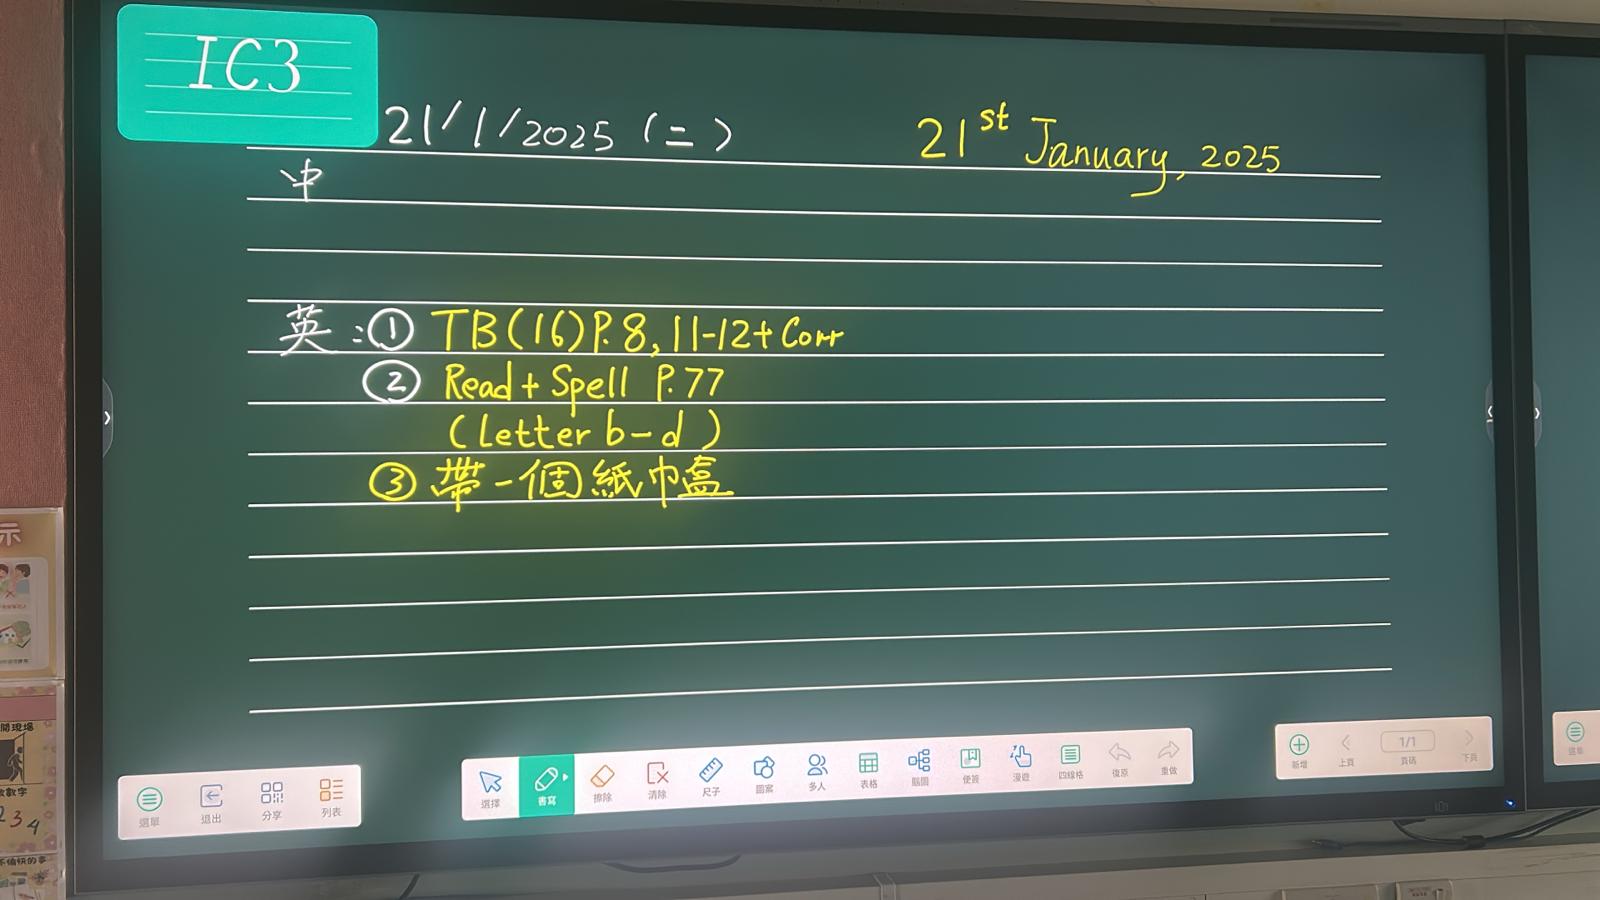 IC3
21/1/2025 (二)
21st January, 2025
中
英:① TB(16)P.8, 11-12+Corr
② Read+Spell P.77
(Letter b-d)
③ 帶一個紙巾盒
選單 退出 分享 列表
選擇 書寫 擦除 清除 尺子 圖案 多人 表格 腦圖 便簽 漫遊 四線格 復原 重做
新增 上頁 1/1 頁碼 下頁
選單
示
開現場
數字
2 3 4
不愉快的事